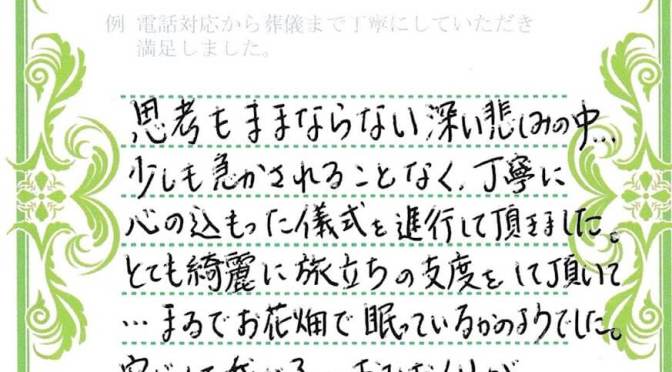 例 電話対応から葬儀まで丁寧にしていただき
満足しました。
思考もままならない深い悲しみの中…
少しも急かされることなく、丁寧に
心の込もった儀式を進行して頂きました。
とても綺麗に旅立ちの支度をして頂いて
…まるでお花畑で眠っているかのようでした。